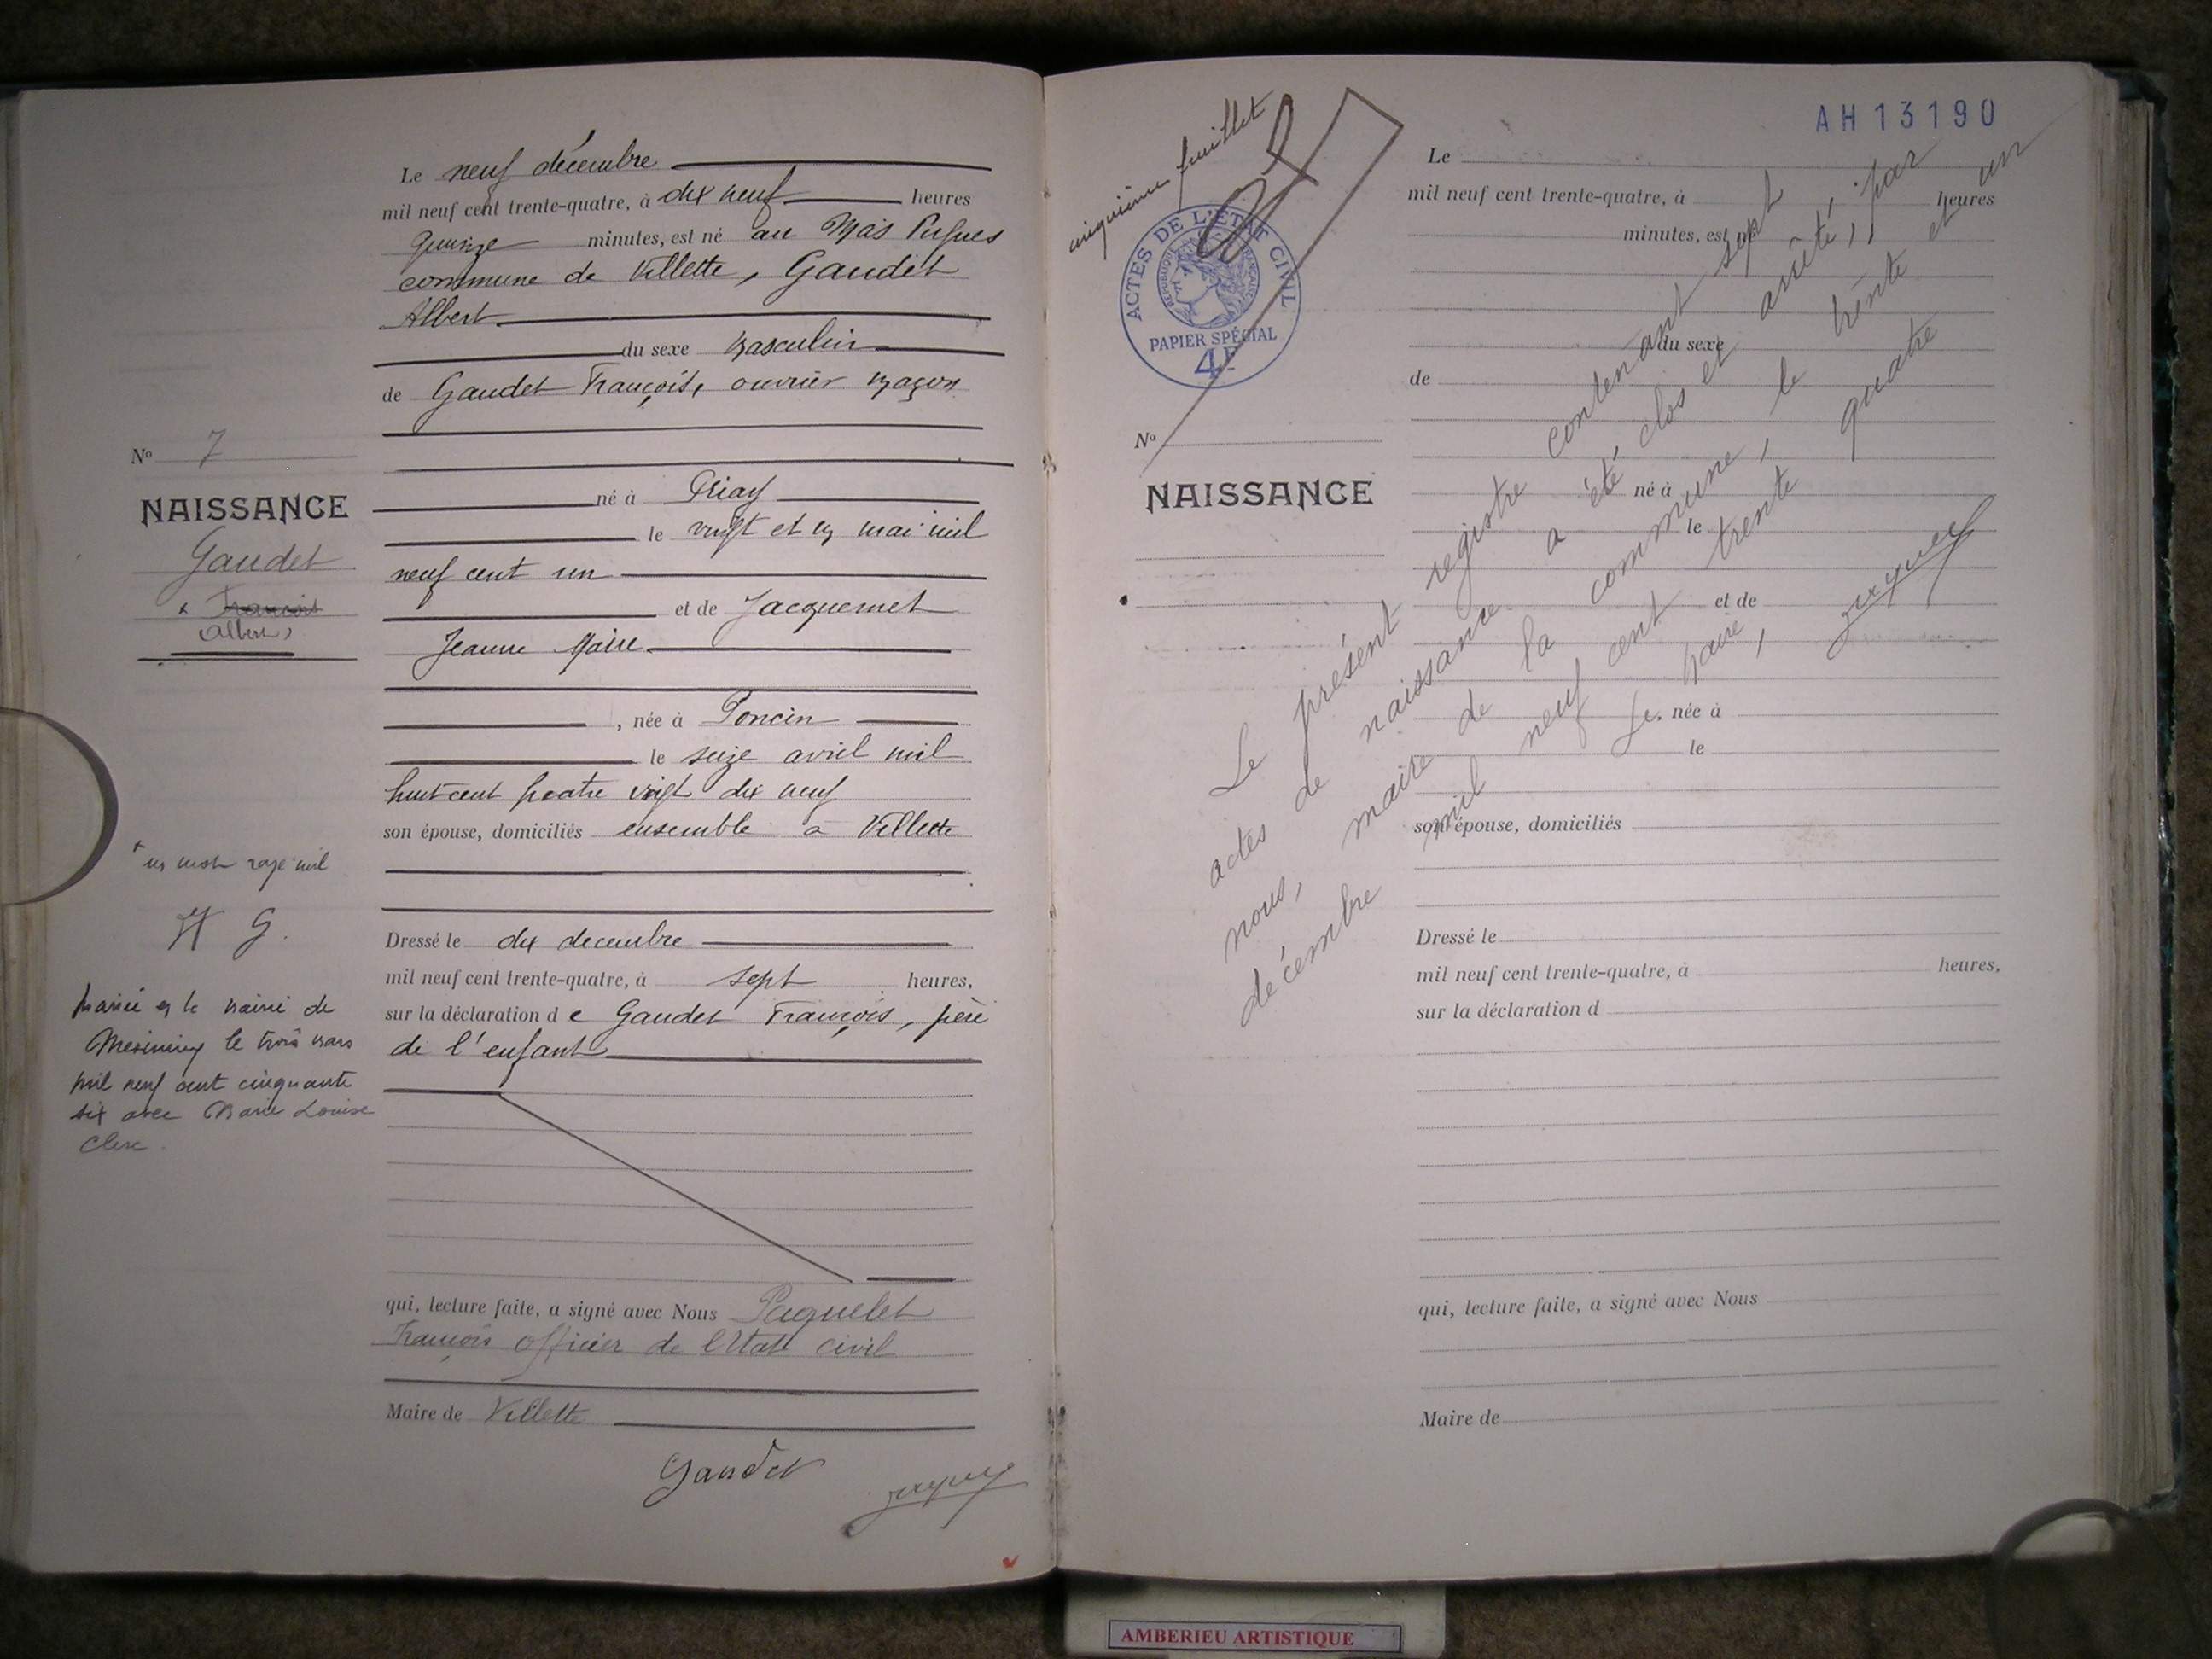 Le neuf décembre
mil neuf cent trente-quatre, à dix neuf heures
quinze minutes, est né au Mas Pugues
commune de Villette, Gaudet
Albert
du sexe masculin
de Gaudet François, ouvrier maçon
né à Priay
le vingt et un mai mil
neuf cent un
et de Jacquemet
Jeanne Marie
, née à Poncin
le seize avril mil
huit cent quatre vingt dix neuf
son épouse, domiciliés ensemble à Villette
Dressé le dix decembre
mil neuf cent trente-quatre, à sept heures,
sur la déclaration de Gaudet François, père
de l'enfant
qui, lecture faite, a signé avec Nous Paquelet
François officier de l'Etat civil
Maire de Villette
Gaudet
No 7
NAISSANCE
Gaudet
x François
Albert
+ un mot rayé nul
G.
Marié en la mairie de
le trois mars
mil neuf cent cinquante
six avec Marie Louise
Clerc
AH13190
cinquième feuillet
ACTES DE L'ÉTAT CIVIL
RÉPUBLIQUE FRANÇAISE
PAPIER SPÉCIAL
4F
No
NAISSANCE
Le
mil neuf cent trente-quatre, à heures
minutes, est né
du sexe
de
né à
le
et de
, née à
le
son épouse, domiciliés
Dressé le
mil neuf cent trente-quatre, à heures,
sur la déclaration d
qui, lecture faite, a signé avec Nous
Maire de
Le présent registre contenant sept
actes de naissance a été clos et arrêté, par
nous, maire de la commune, le trente et un
décembre mil neuf cent trente quatre
Le Maire,
AMBERIEU ARTISTIQUE